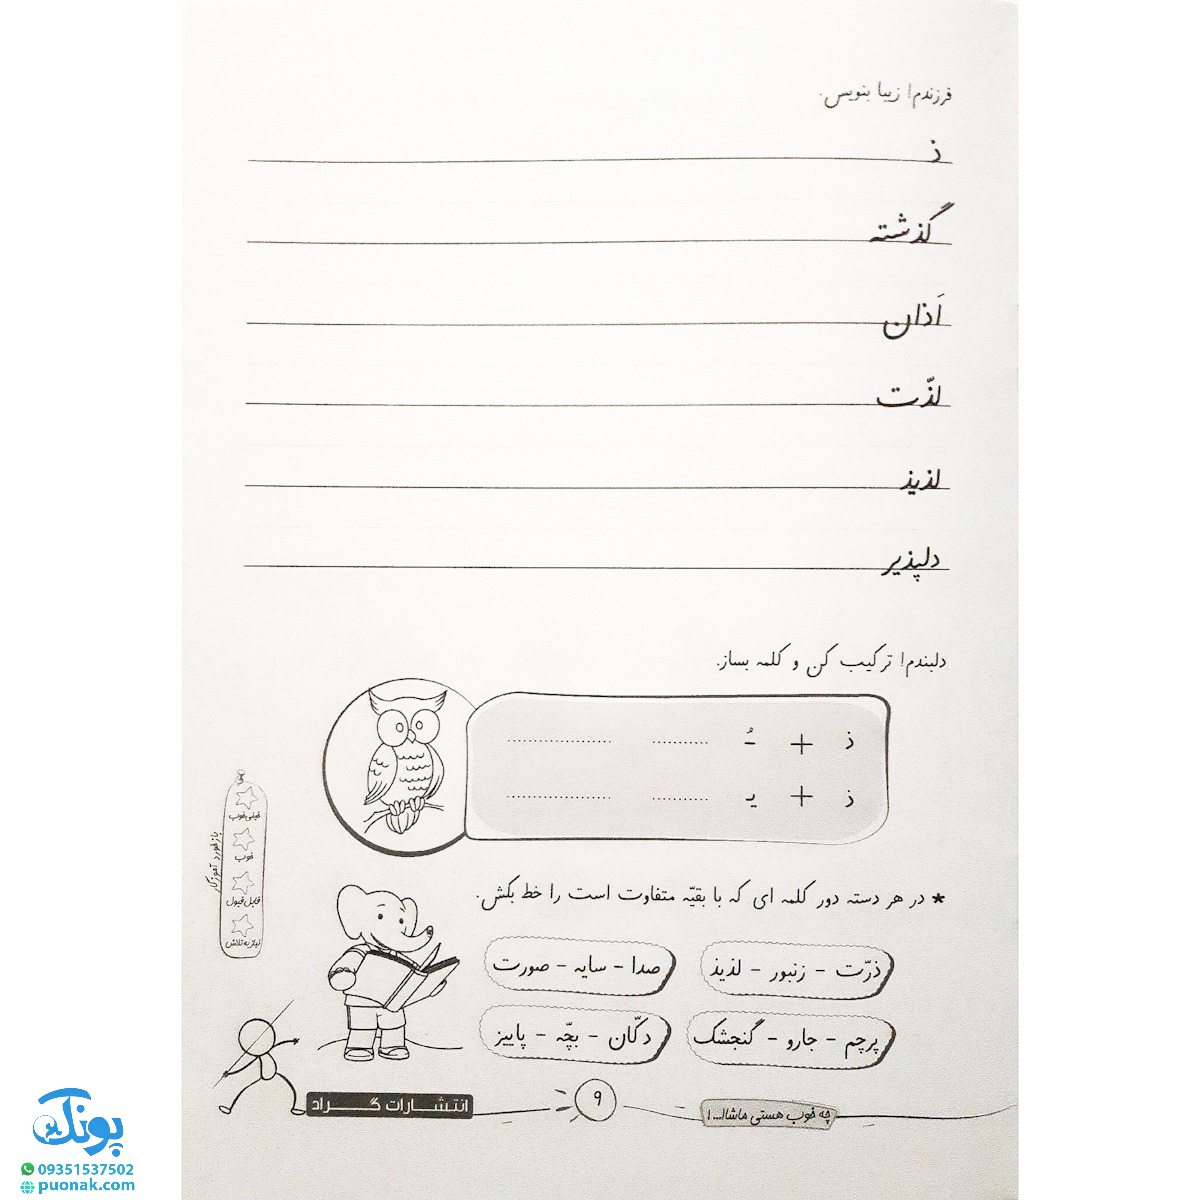 فرزندم! زیبا بنویس.
ذ
گذشته
اَذان
لذّت
لذیذ
دلپذیر
دلبندم! ترکیب کن و کلمه بساز.
ذ + ـُ ........... ....................
ذ + یـ ........... ....................
بازخورد آموزگار
خیلی خوب
خوب
قابل قبول
نیاز به تلاش
* در هر دسته دور کلمه ای که با بقیّه متفاوت است را خط بکش.
ذرّت - زنبور - لذیذ
صدا - سایه - صورت
پرچم - جارو - گنجشک
دکّان - بچّه - پاییز
چه خوب هستی ماشاا...!
۹
انتشارات گراد
پونک
09351537502
puonak.com